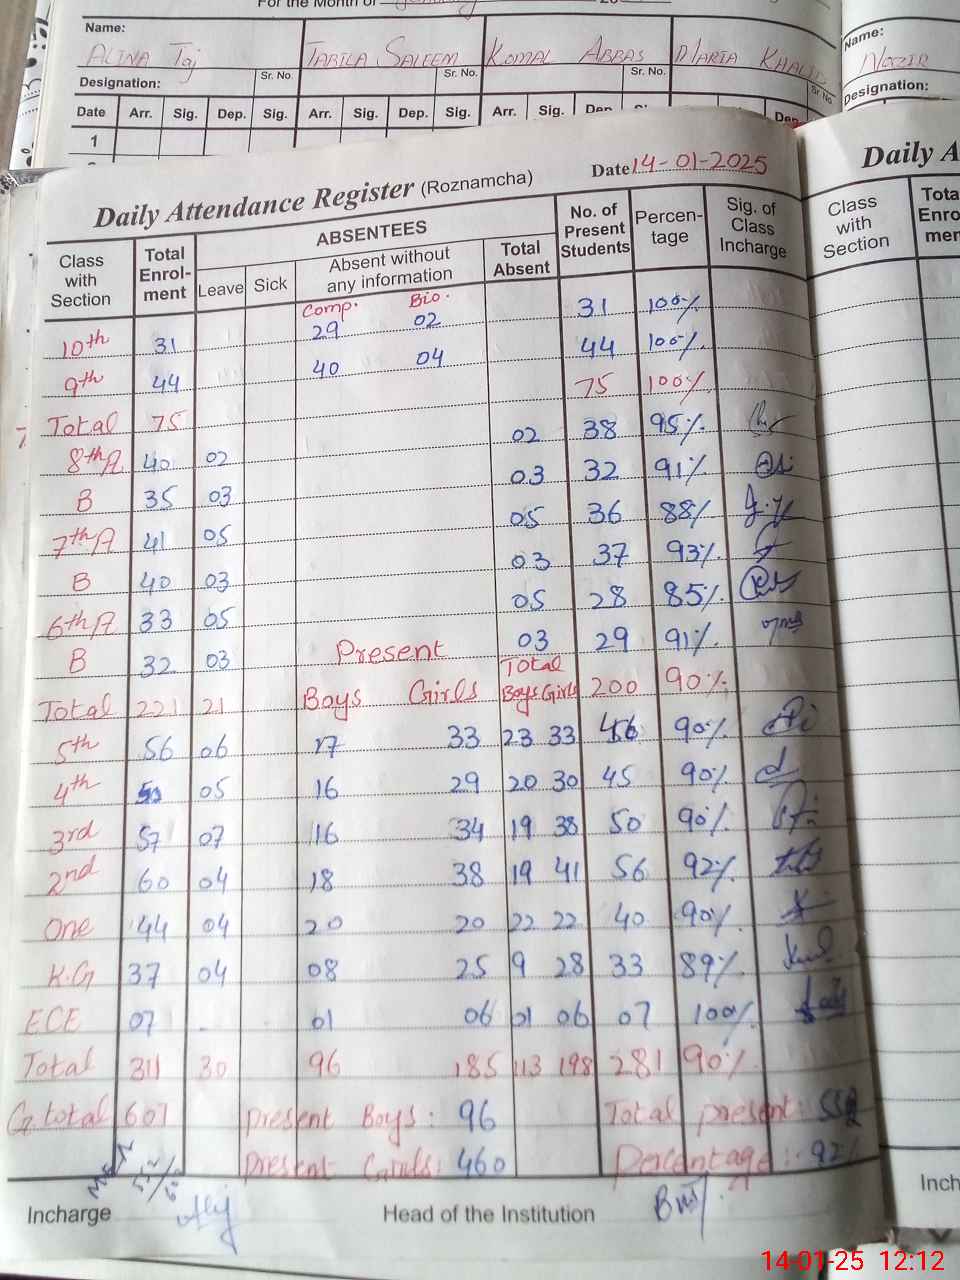 For the Month of January 20
Name: Name:
ALINA Taj TABILA SALEEM KOMAL ABBAS MARIA KHALID NAZIR
Designation: Sr. No. Sr. No. Sr. No. Sr. No. Designation:
Date Arr. Sig. Dep. Sig. Arr. Sig. Dep. Sig. Arr. Sig. Dep. Dep.
1
Daily Attendance Register (Roznamcha) Date 14-01-2025 Daily A
Class with Section Total Enrol-ment ABSENTEES No. of Present Students Percen-tage Sig. of Class Incharge Class with Section Tota Enro men
Leave Sick Absent without any information Total Absent
Comp. Bio.
10th 31 29 02 31 100%
9th 44 40 04 44 100%
Total 75 75 100%
8th A 40 02 02 38 95%
B 35 03 03 32 91%
7th A 41 05 05 36 88%
B 40 03 03 37 93%
6th A 33 05 05 28 85%
B 32 03 03 29 91%
Present Total
Total 221 21 Boys Girls Boys Girls 200 90%
5th 56 06 17 33 23 33 90%
4th 50 05 16 29 20 30 45 90%
3rd 57 07 16 34 19 38 50 90%
2nd 60 04 18 38 19 41 56 92%
One 44 04 20 20 22 22 40 90%
K.G 37 04 08 25 9 28 33 89%
ECE 07 - 01 06 01 06 07 100%
Total 311 30 96 185 113 198 281 90%
G. total 607 Present Boys: 96 Total present:
Present Girls: 460 Percentage: 92%
Incharge Head of the Institution Inch
14-01-25 12:12